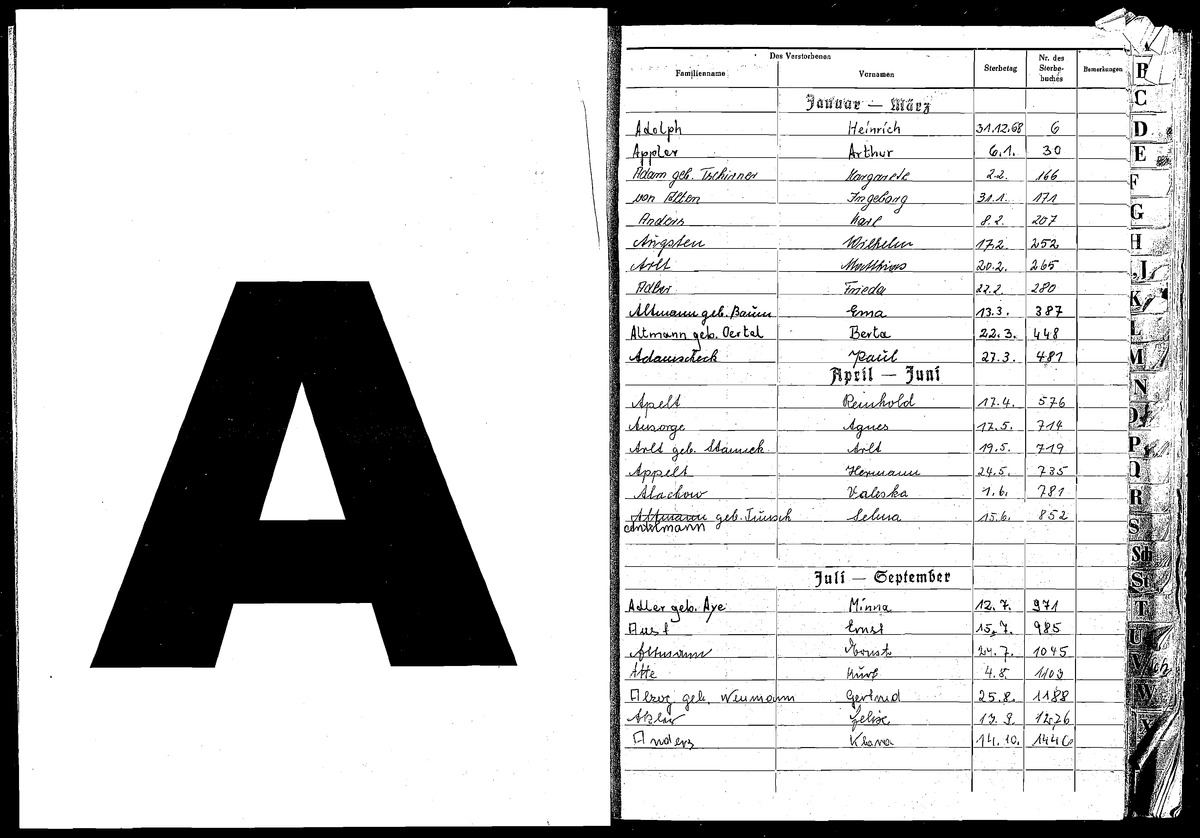 A
Des Verstorbenen
Familienname Vornamen Sterbetag Nr. des Sterbe-buches Bemerkungen
Januar — März
Adolph Heinrich 31.12.68 6
Appler Arthur 6.1. 30
Adam geb. Tschirner Margarete 2.2. 166
von Alten Ingeborg 31.1. 171
Anders Karl 8.2. 207
Angsten Wilhelm 17.2. 252
Arlt Matthias 20.2. 265
Adler Frieda 22.2. 280
Altmann geb. Baum Erna 13.3. 387
Altmann geb. Oertel Berta 22.3. 448
Adamscheck Paul 27.3. 481
April — Juni
Apelt Reinhold 17.4. 576
Ansorge Agnes 17.5. 714
Arlt geb. Arlt 19.5. 719
Appelt Hermann 24.5. 735
Alachow Valeska 1.6. 781
Altmann geb. Selma 15.6. 852
Antelmann
Juli — September
Adler geb. Aye Minna 12.7. 971
Aust Ernst 15.7. 985
Altmann Ernst 24.7. 1045
Atte Kurt 4.8. 1103
Alzog geb. Neumann Gertrud 25.8. 1188
Felix 13.9. 1276
Anders Klara 14.10. 1446
B
C
D
E
F
G
H
I,J
K
L
M
N
O
P
Q
R
S
Sch
St
T
U
V
W